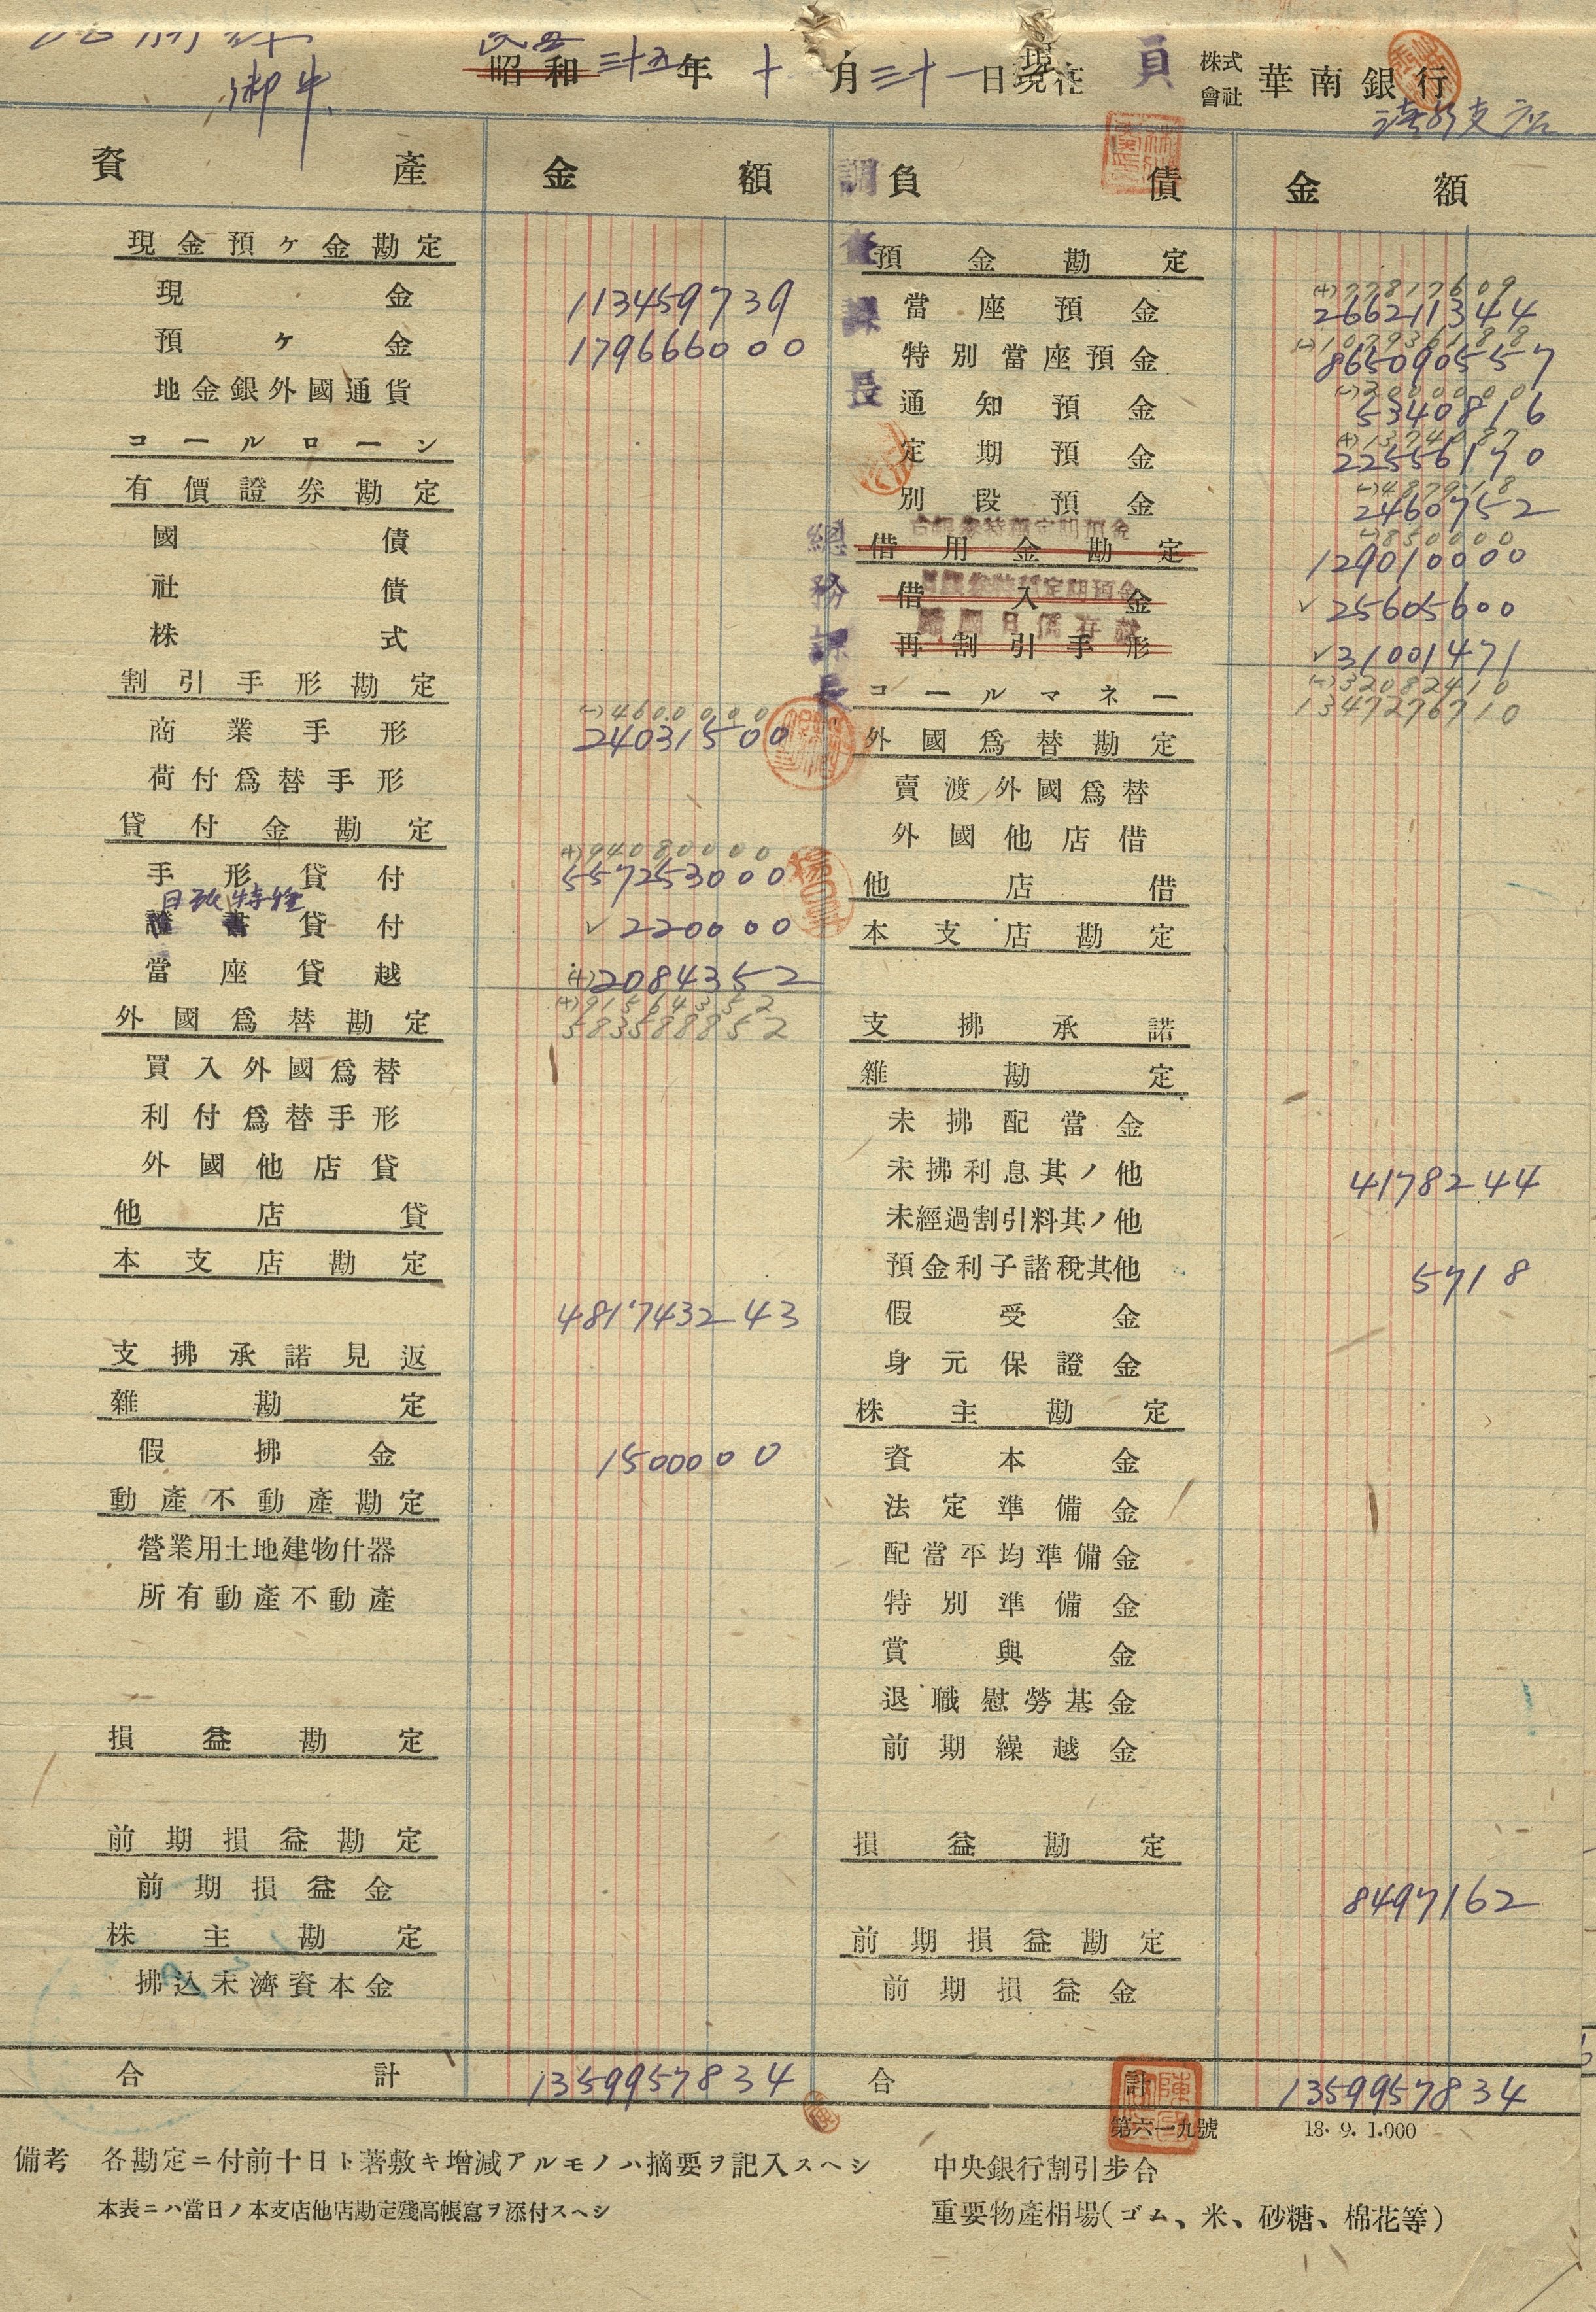 御中
民國
昭和三十五年十月三十一日現在
頁
株式會社 華南銀行
支店
資產 金額 負債 金額
調查課長
總務課長
現金預ヶ金勘定
現金 113459739
預ヶ金 179666000
地金銀外國通貨
コールローン
有價證券勘定
國債
社債
株式
割引手形勘定
(-)4600000
商業手形 24031500
荷付爲替手形
貸付金勘定
(+)94080000
手形貸付 557253000
日政特種
證書貸付 ✓220000
當座貸越 (+)2084352
(+)91564352
583588852
外國爲替勘定
買入外國爲替
利付爲替手形
外國他店貸
他店貸
本支店勘定
481743243
支拂承諾見返
雜勘定
假拂金 1500000
動產不動產勘定
營業用土地建物什器
所有動產不動產
損益勘定
前期損益勘定
前期損益金
株主勘定
拂込未濟資本金
合計 1359957834
預金勘定
(+)77817609
當座預金 266211344
(-)107936188
特別當座預金 865090557
(-)2000000
通知預金 5340816
(+)1374087
定期預金 22556170
(-)487918
別段預金 2460752
台銀券特種定期預金
(-)850000
借用金勘定 129010000
日銀券特種定期預金
借入金 ✓25605600
再割引手形 ✓31001471
(-)32082410
1347276710
コールマネー
外國爲替勘定
賣渡外國爲替
外國他店借
他店借
本支店勘定
支拂承諾
雜勘定
未拂配當金
未拂利息其ノ他 4178244
未經過割引料其ノ他
預金利子諸稅其他 5718
假受金
身元保證金
株主勘定
資本金
法定準備金
配當平均準備金
特別準備金
賞與金
退職慰勞基金
前期繰越金
損益勘定
8497162
前期損益勘定
前期損益金
合計 1359957834
第六一九號 18.9.1.000
備考 各勘定ニ付前十日ト著敷キ增減アルモノハ摘要ヲ記入スヘシ
本表ニハ當日ノ本支店他店勘定殘高帳寫ヲ添付スヘシ
中央銀行割引步合
重要物產相場(ゴム、米、砂糖、棉花等)